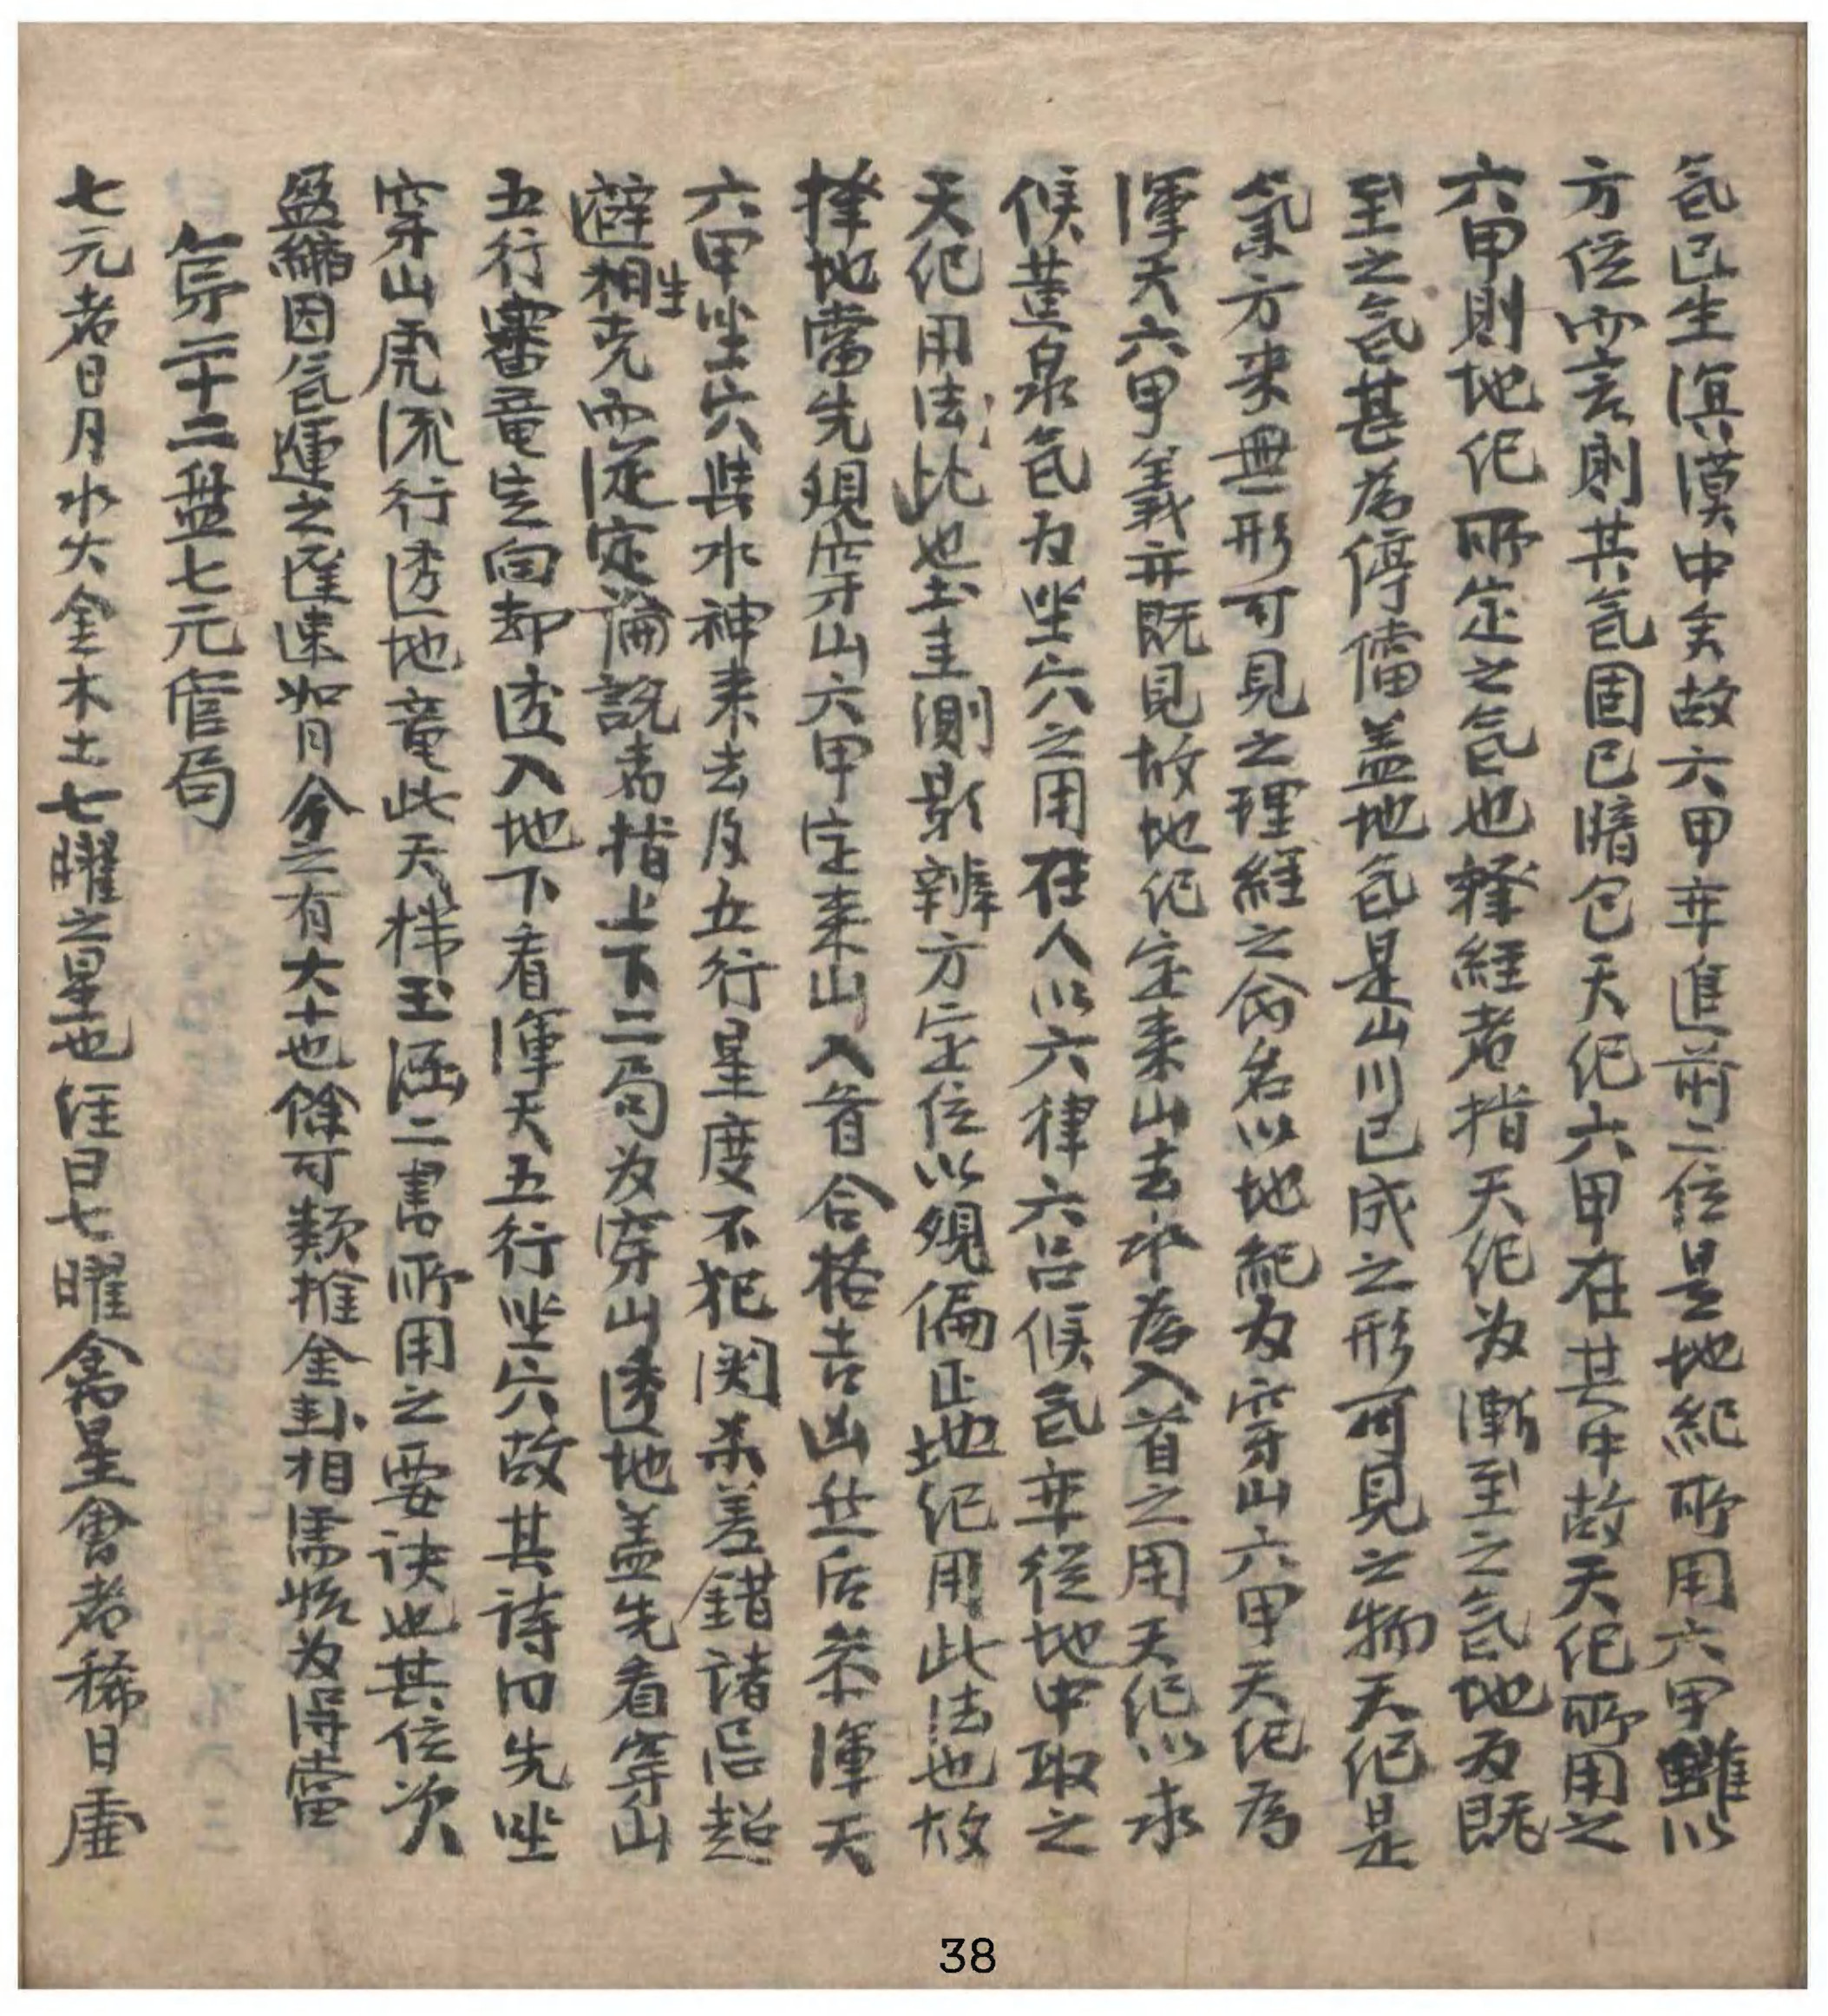 氣已生溟漠中矣故六甲亦進前二位是地紀所用六甲雖以
方位而言則其氣固已暗包天紀六甲在其中故天紀所用之
六甲則地紀所定之氣也釋經者指天纪为漸至之氣地为既
至之氣甚為停儅盖地氣是山川已成之形可見之物天纪是
氣方来無形可見之理經之命名以地紀为穿山六甲天纪為
渾天六甲義亦既見故地纪定来山去水為入首之用天纪以求
候黄泉氣为坐穴之用在人以六律六吕候氣亦從地中取之
天纪用法比也土圭測影辨方定位以覌偏正地纪用此法也故
擇地當先覌穿山六甲定来山入首合格吉凶然后叅渾天
六甲坐穴與水神来去及五行星度不犯関杀差錯諸忌趍
避相生克而定論說者指上下二局为穿山透地盖先看穿山
五行審竜定向却透入地下看渾天五行坐穴故其詩曰先坐
穿山虎流行透地竜此天梯玉涵二書所用之要诀也其位次
盈縮因氣運之遲速如月令之有大小也餘可類推全卦相為得當
第二十二盤七元管局
七元者日月水火金木土七曜之星也在日七曜禽星會者稀日虚
38